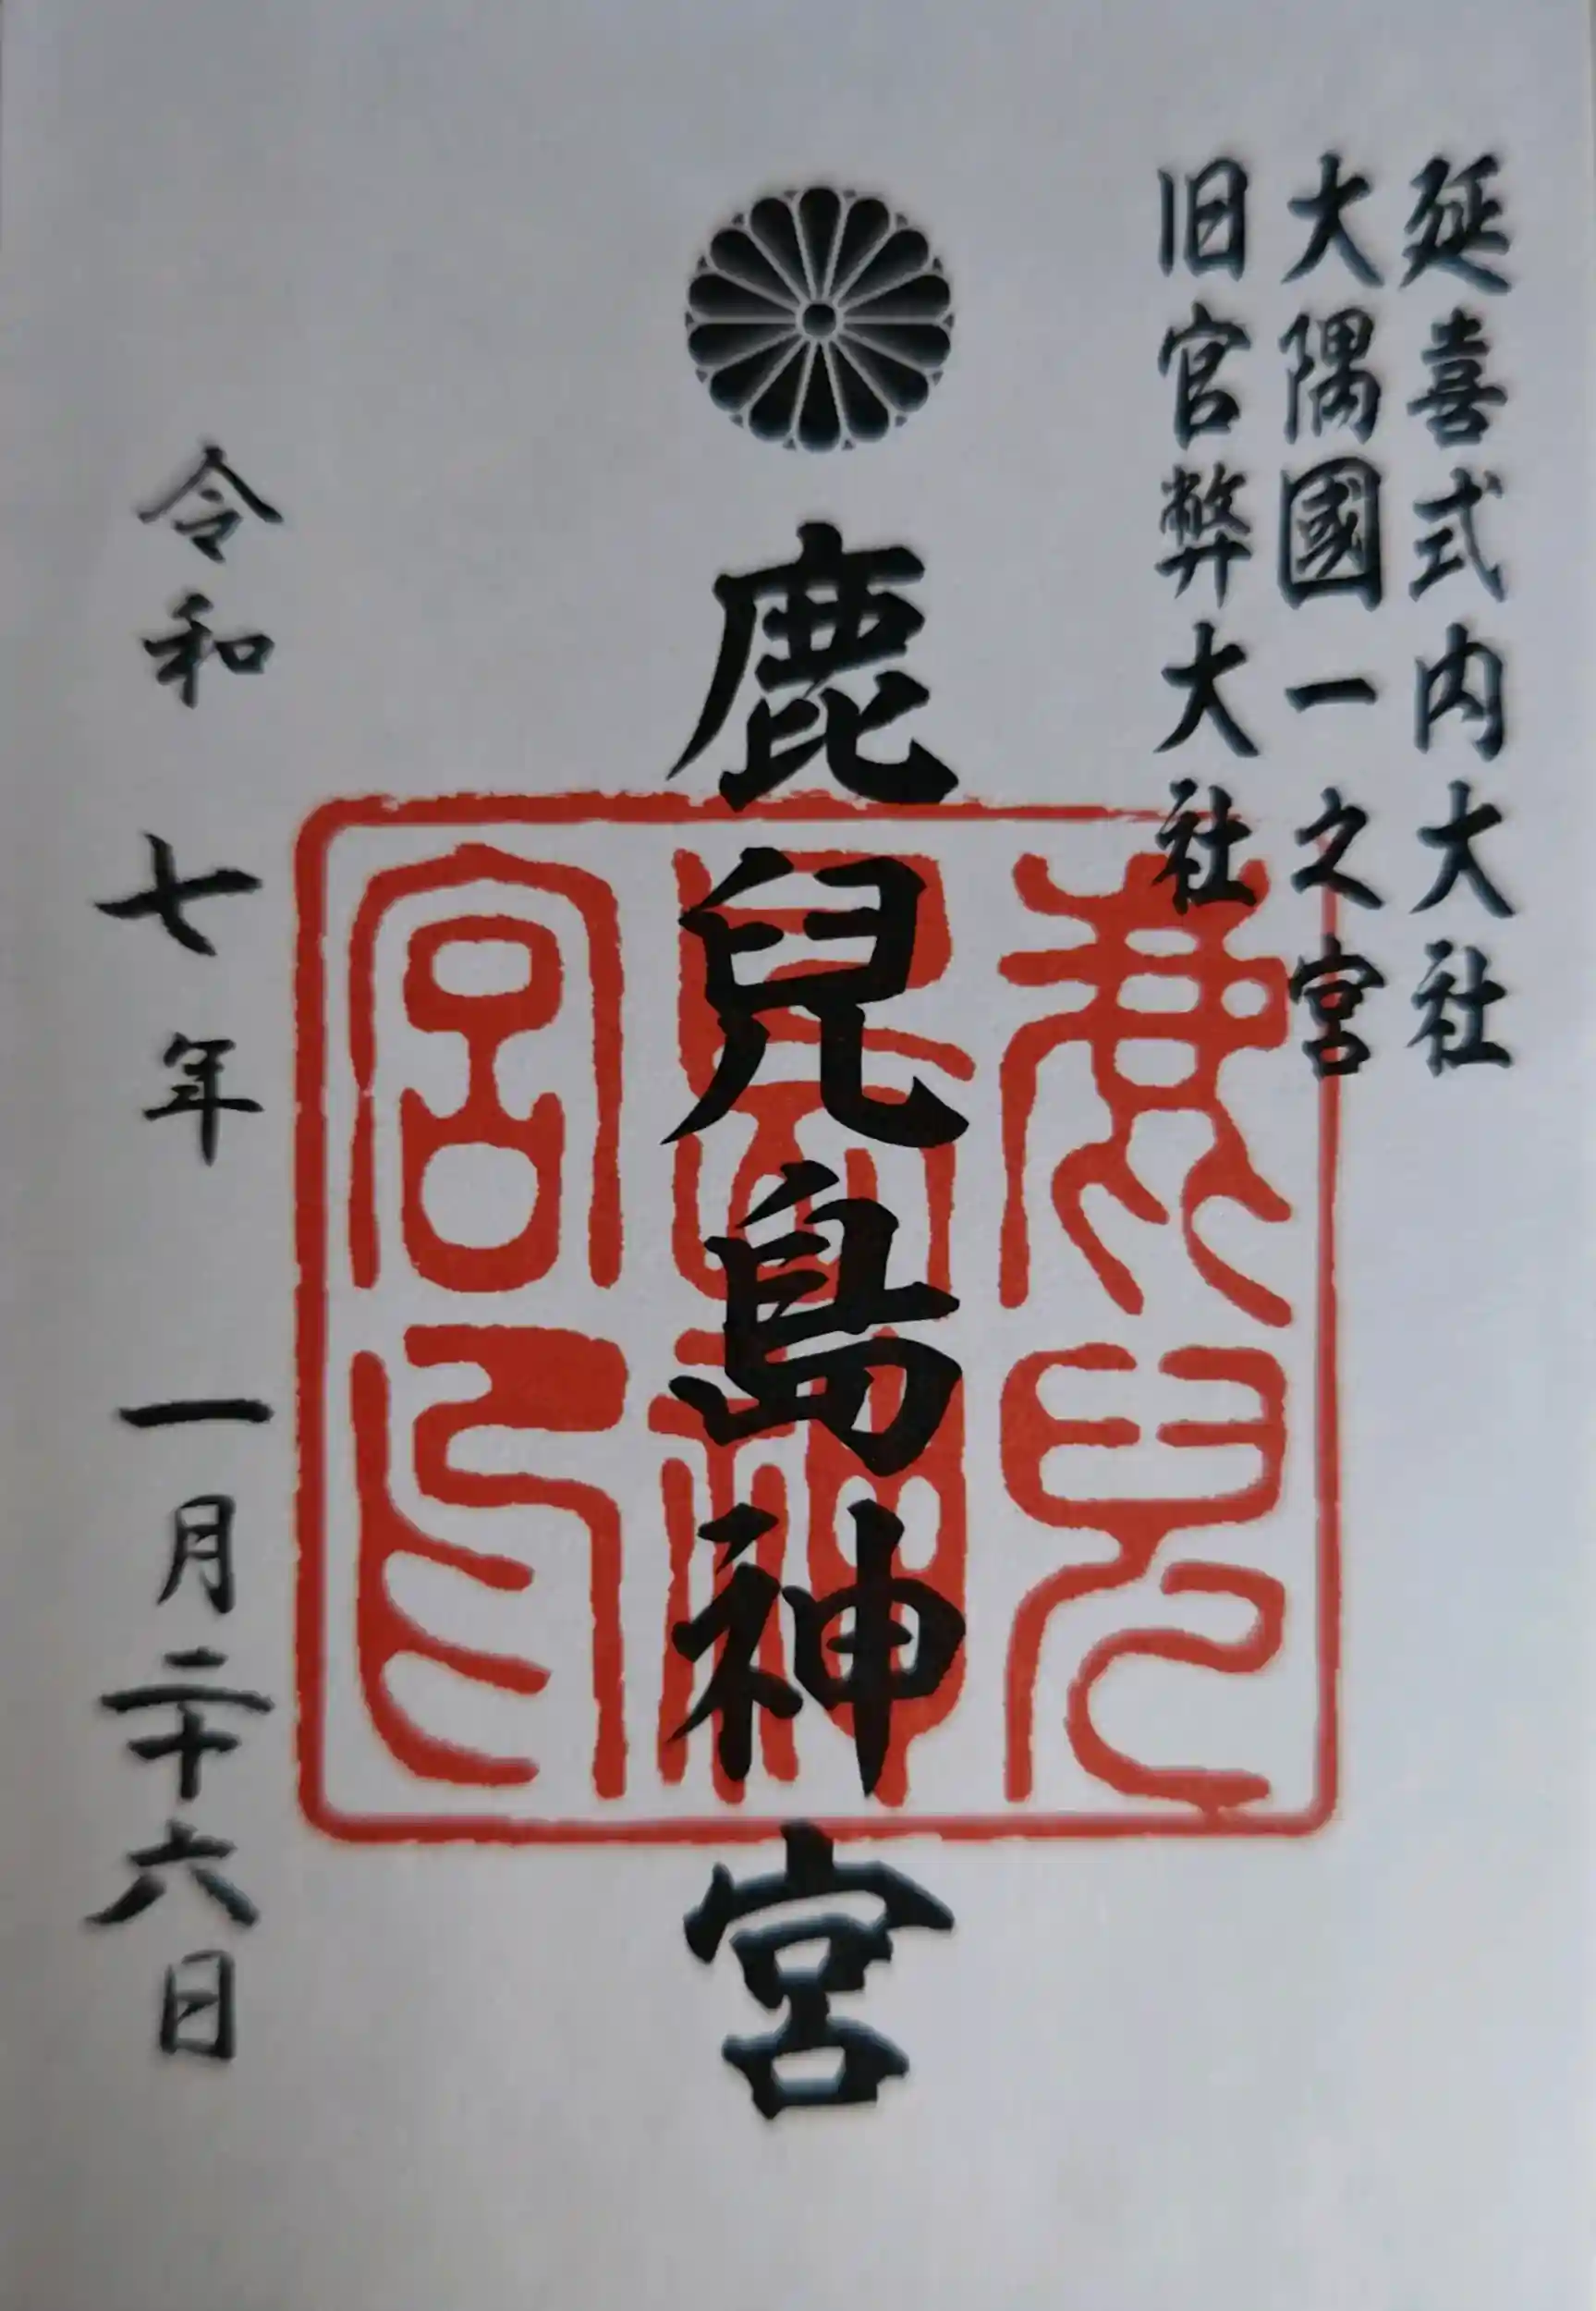 延喜式内大社
大隅國一之宮
旧官弊大社
鹿兒島神宮
鹿兒島神宮印
令和七年一月二十六日